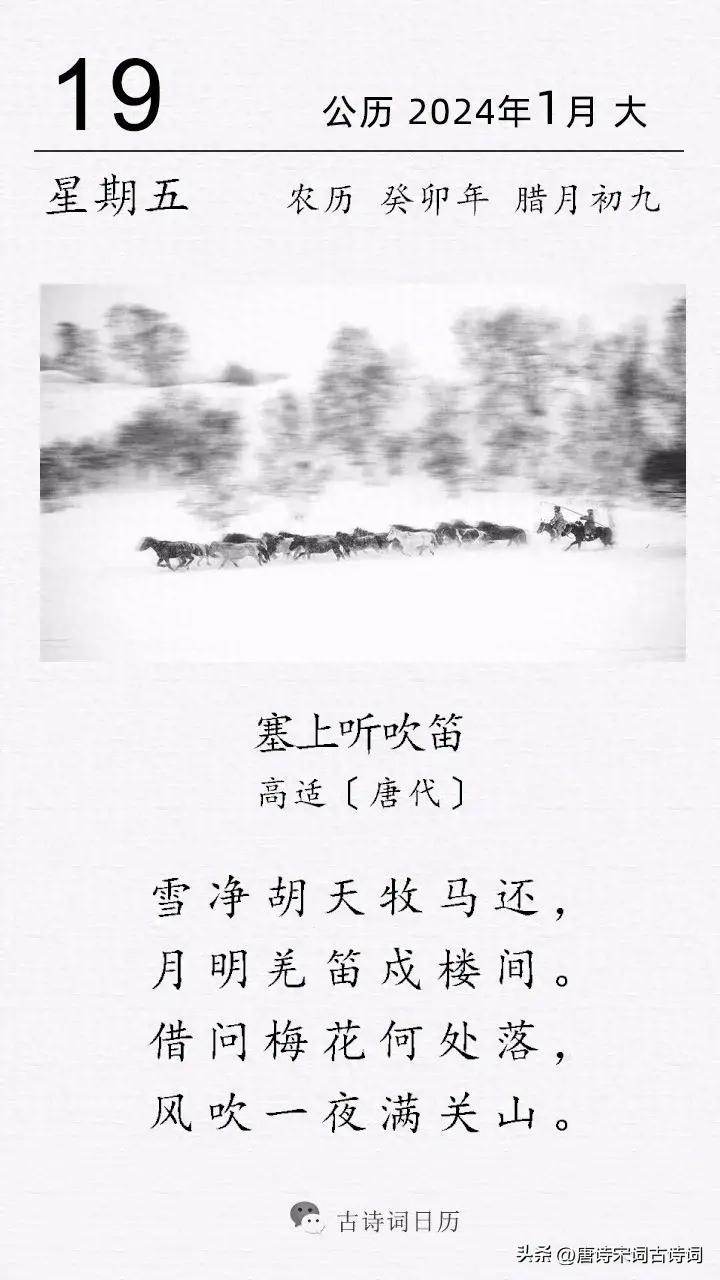 19
公历 2024年1月 大
星期五 农历 癸卯年 腊月初九
塞上听吹笛
高适〔唐代〕
雪净胡天牧马还，
月明羌笛戍楼间。
借问梅花何处落，
风吹一夜满关山。
古诗词日历
头条 @唐诗宋词古诗词